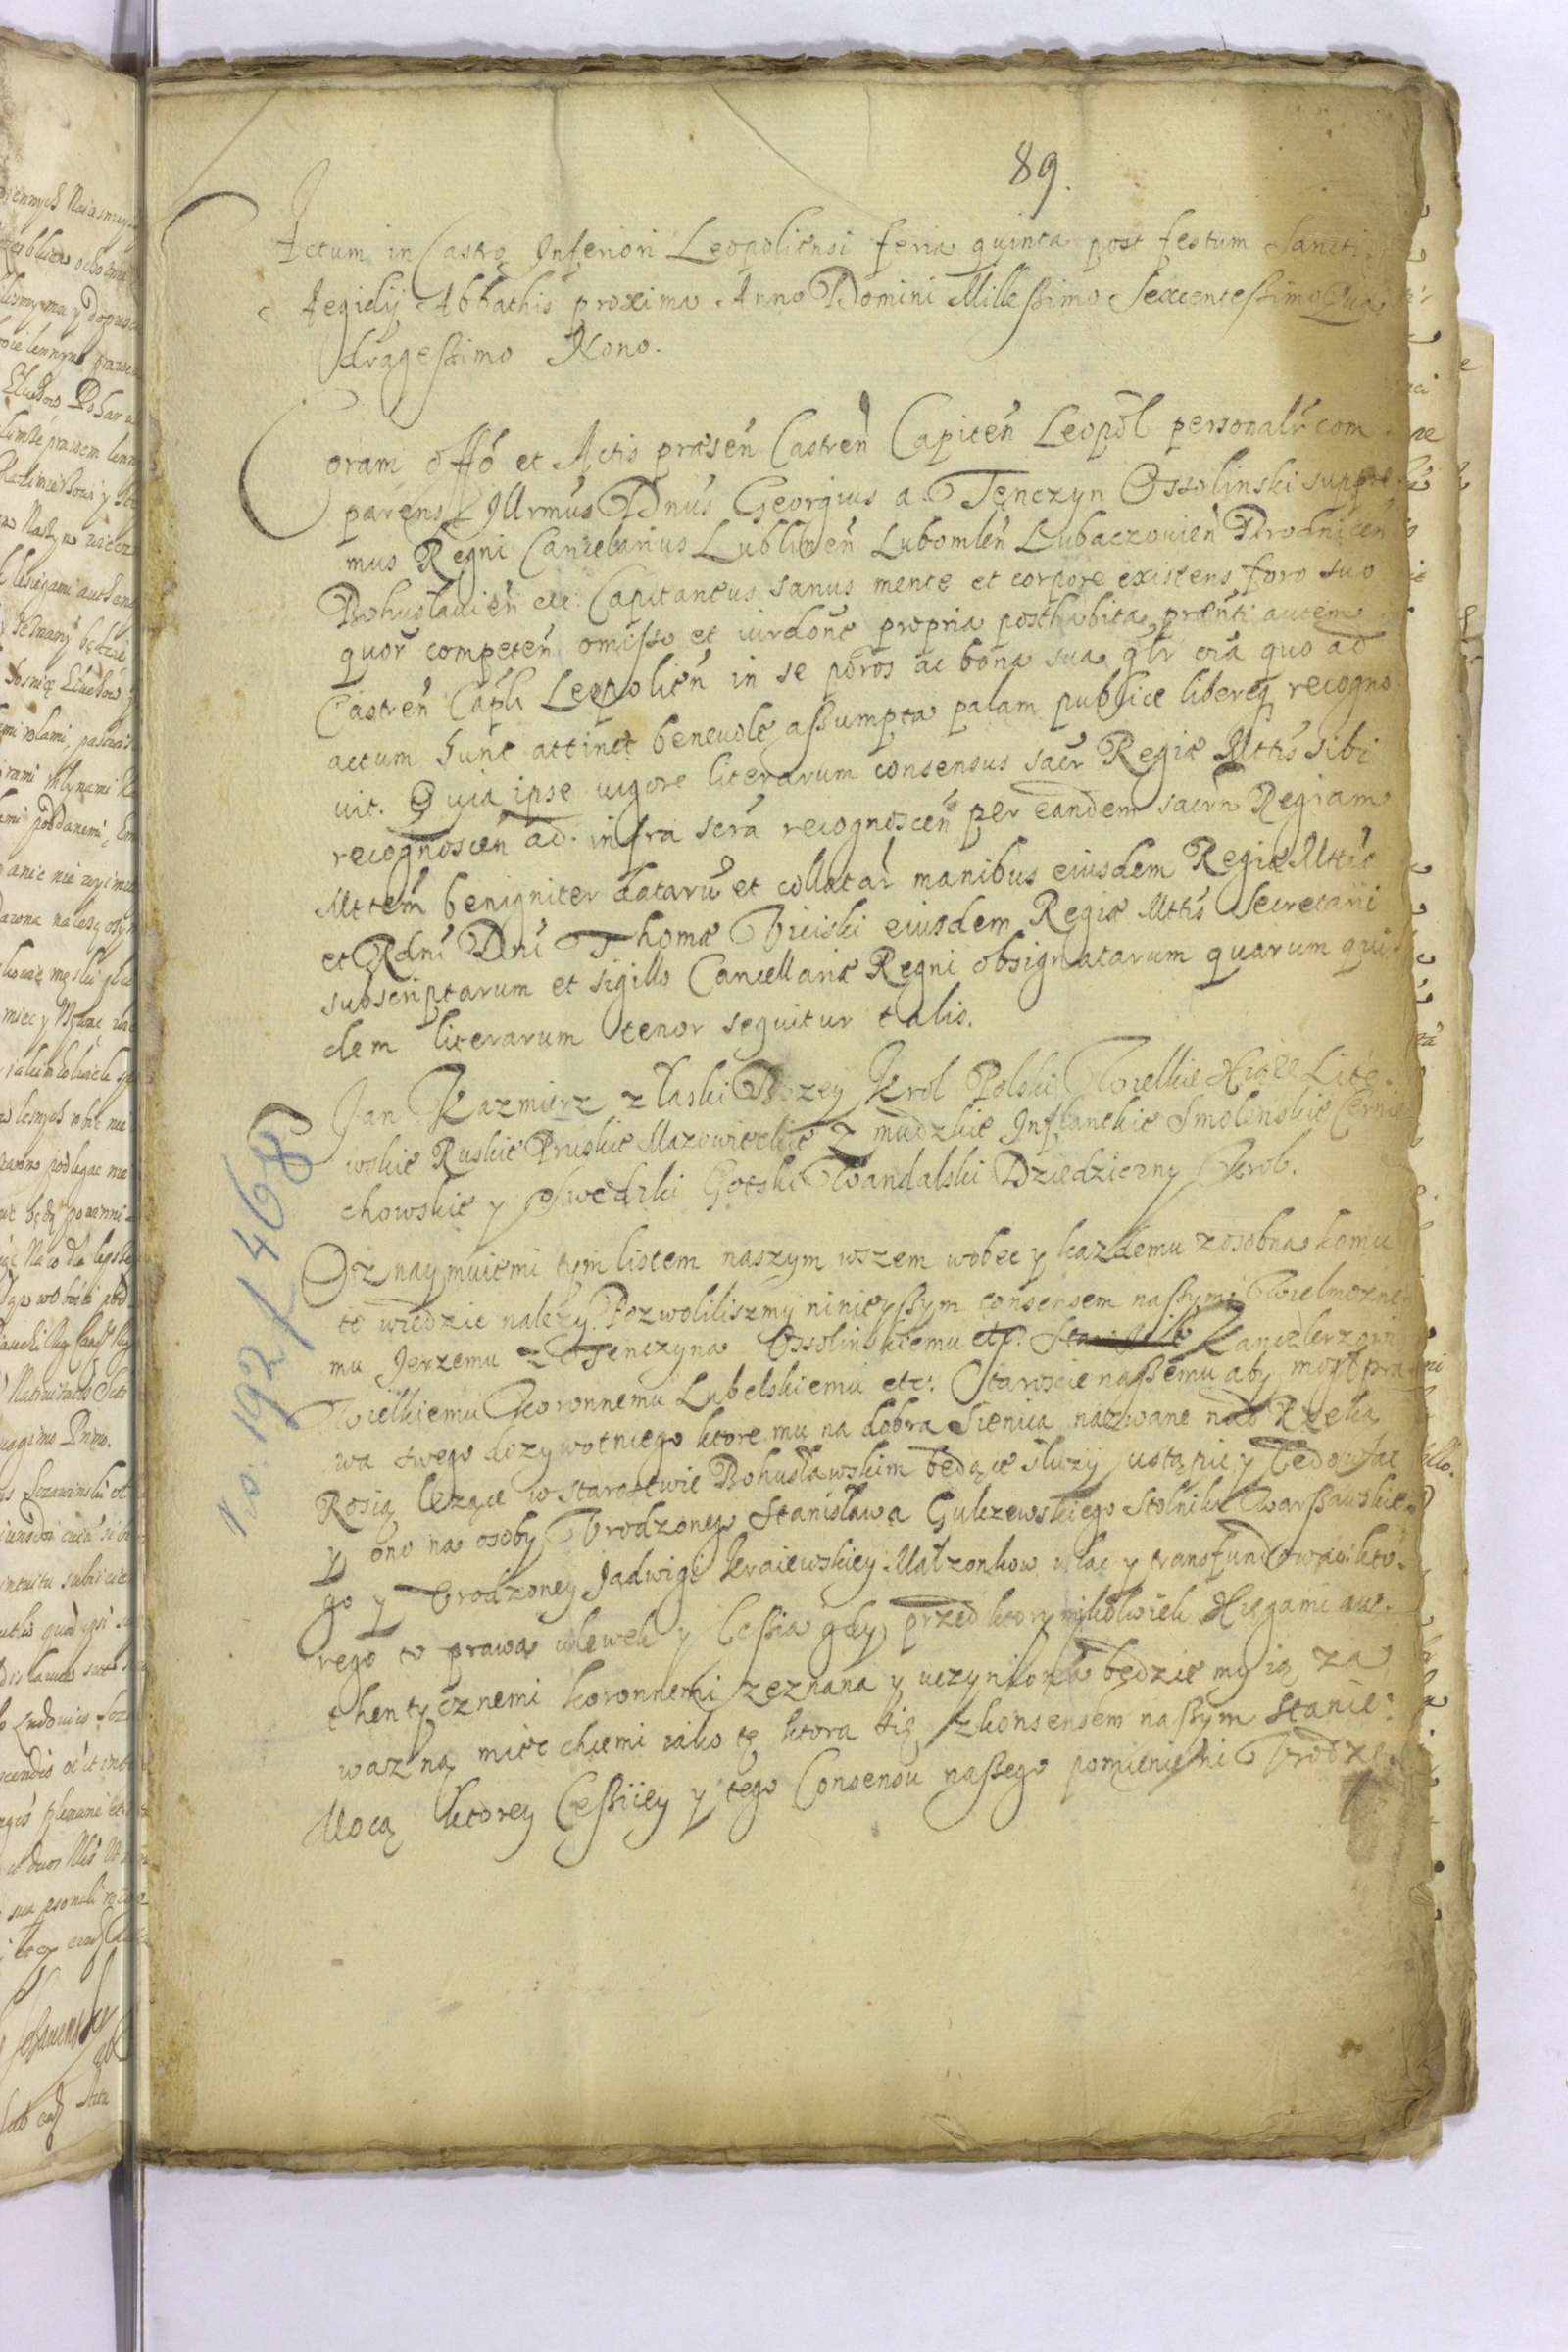 89.
Actum in Castro Inferiori Leopoliensi feria quinta post festum Sancti
Aegidij Abbathis proxima Anno Domini Millessimo Sexcentessimo Qua
dragessimo Nono.
Coram offo et Actis præsen Castren Capiten Leopol personalr com
parens Illrmus Dnus Georgius a Tęnczyn Ossolinski supre
mus Regni Cancelarius Lublinen Lubomlen Lubaczouien Brodnicen
Bohuslauien etc Capitaneus sanus mente et corpore existens foro suo
quor competen omisso et iurdone propria posthabita, prænti autem
Castren Capli Leopolien in se poros ac bona sua glr oia quo ad
actum hunc attinet beneuole assumpta palam publice libereq recogno
uit. Quia ipse uigore literarum consensus sacr Regiæ Mttis sibi
recognoscen ad infra scra recognoscen per eandem sacrn Regiam
Mttem benigniter dataru et collatar manibus eiusdem Regiæ Mttis
et Rdni Dni Thomæ Uieiski eiusdem Regiæ Mttis Secretarii
subscriptarum et sigillo Cancellariæ Regni obsignatarum quarum qui
dem literarum tenor sequitur talis.
Jan Kazmierz z łaski Bozey Krol Polski Wielkie Xiąże Lite
wskie Ruskie Pruskie Mazowieckie Zmudzkie Inflantskie Smolenskie Czernie
chowskie y Szwedzki Gotski Wandalski Dziedziczny Krol.
Oznaymuiemi tym listem naszym wszem wobec y kazdemu zosobna komu
to wiedzic nalezy. Pozwoliliszmy ninieyssym consensem nassymi Wielmozne
mu Jerzemu z Tenczyna Ossolinskiemu etc. Kanczlerzowi
Wielkiemu Koronnemu Lubelskiemu etc. Staroscie nassemu aby mogł pra
wa swego dozywotniego ktore mu na dobra Sienica nazwane nad Rzeką
Rosią lezące w starostwie Bohusławskim będące słuzy ustąpic y Cedowac
y ono na osoby Urodzonego Stanisława Gulczewskiego Stolnika Warszawskie
go y Urodzoney Jadwigi Kraiewskiey Małzonkow wlac y transfundowac kto
rego to prawa wlewek y Cessia gdy przed ktorymikolwiek Xięgami au
thentycznemi koronnemi zeznana y uczyniona będzie my ią za
wazną miec chcemi iako tę ktora się z konsensem nassym stanie.
Mocą ktorey Cessiiey y tego Consensu nassego pomienieni Urodze
No. 192/468